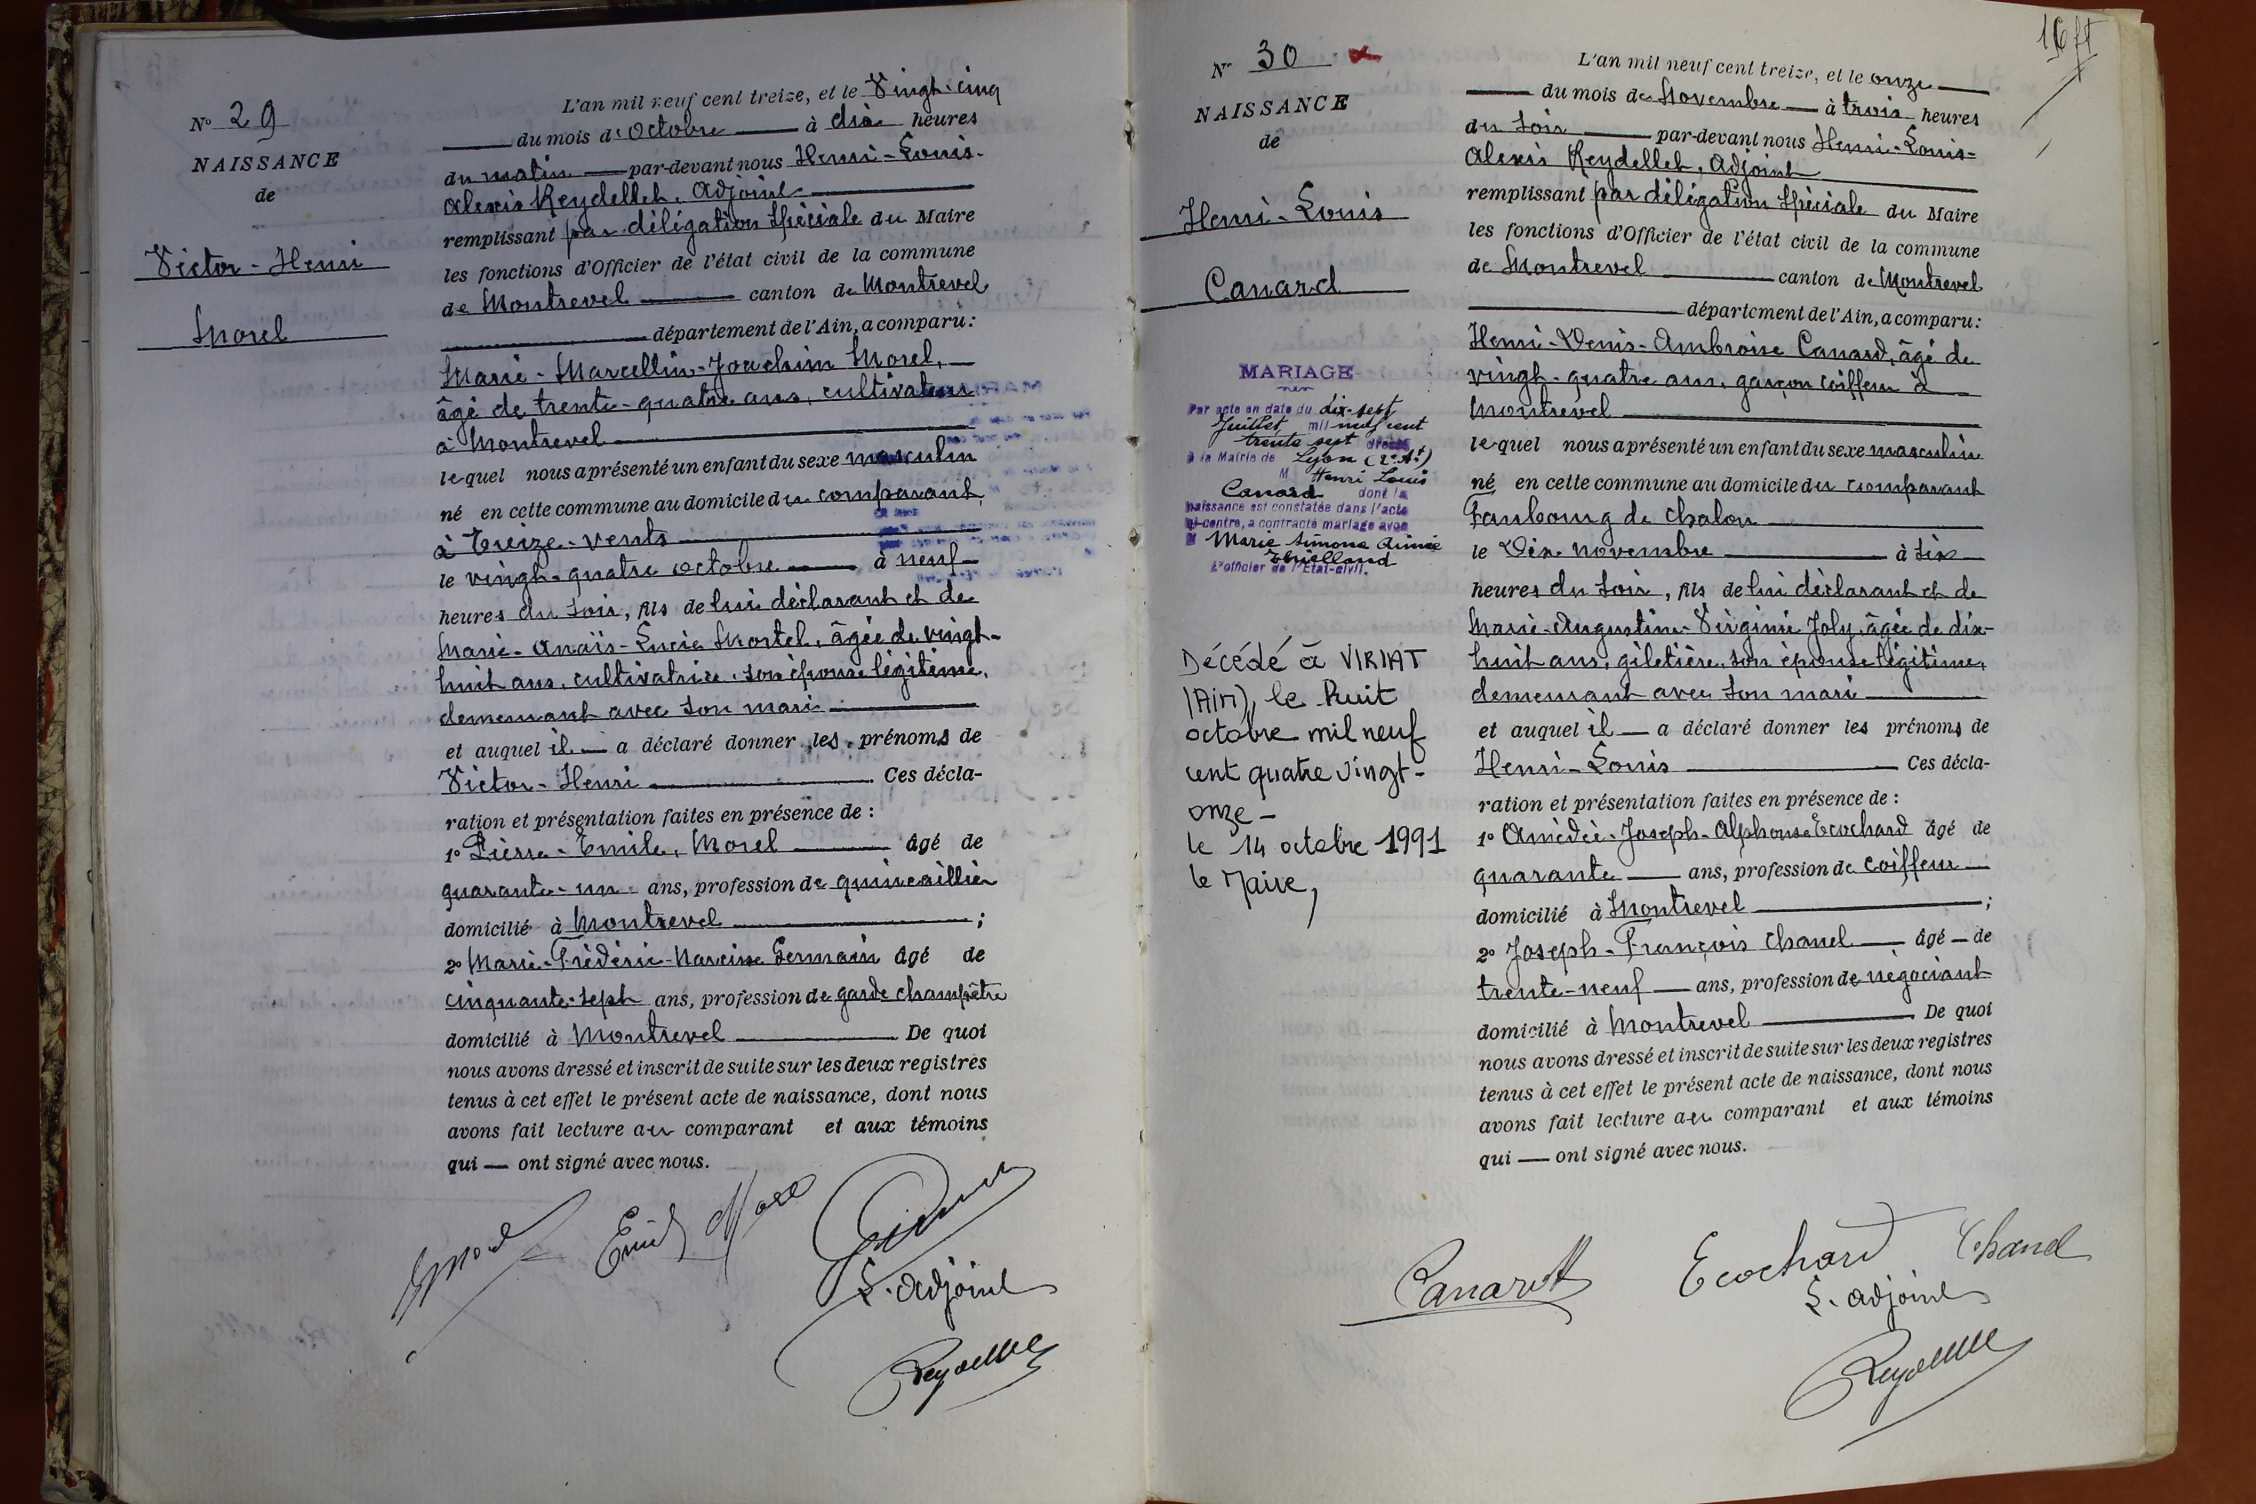 N° 29
NAISSANCE
de
Victor-Henri
Morel
L'an mil neuf cent treize, et le Vingt-cinq
du mois d'Octobre à dix heures
du matin par-devant nous Henri-Louis-
Alexis Reydellet, Adjoint
remplissant par délégation spéciale du Maire
les fonctions d'Officier de l'état civil de la commune
de Montrevel canton de Montrevel
département de l'Ain, a comparu :
Marie-Marcellin-Joachim Morel,
âgé de trente-quatre ans, cultivateur
à Montrevel
lequel nous a présenté un enfant du sexe masculin
né en cette commune au domicile du comparant
à Treize-vents
le vingt-quatre octobre à neuf
heures du soir, fils de lui déclarant et de
Marie-Anaïs-Lucie Mortel, âgée de vingt-
huit ans, cultivatrice, son épouse légitime,
demeurant avec son mari
et auquel il a déclaré donner les prénoms de
Victor-Henri Ces décla-
ration et présentation faites en présence de :
1° Pierre-Emile, Morel âgé de
quarante-un ans, profession de quincaillier
domicilié à Montrevel ;
2° Marie-Frédéric-Narcisse Germain âgé de
cinquante-sept ans, profession de garde champêtre
domicilié à Montrevel De quoi
nous avons dressé et inscrit de suite sur les deux registres
tenus à cet effet le présent acte de naissance, dont nous
avons fait lecture au comparant et aux témoins
qui ont signé avec nous.
Morel Emile Morel Germain
L'adjoint
Reydellet
16
N° 30
NAISSANCE
de
Henri-Louis
Canard
MARIAGE
Par acte en date du dix-sept
Juillet mil neuf cent
trente sept dressé
à la Mairie de Lyon (2e At)
M Henri Louis
Canard dont la
naissance est constatée dans l'acte
ci-contre, a contracté mariage avec
M Marie Simone Aimée
L'officier de l'Etat-civil.
Décédé à VIRIAT
(Ain), le huit
octobre mil neuf
cent quatre vingt-
onze -
le 14 octobre 1991
le Maire,
L'an mil neuf cent treize, et le onze
du mois de Novembre à trois heures
du soir par-devant nous Henri-Louis-
Alexis Reydellet, Adjoint
remplissant par délégation spéciale du Maire
les fonctions d'Officier de l'état civil de la commune
de Montrevel canton de Montrevel
département de l'Ain, a comparu :
Henri-Denis-Ambroise Canard, âgé de
vingt-quatre ans, garçon coiffeur à
Montrevel
lequel nous a présenté un enfant du sexe masculin
né en cette commune au domicile du comparant
Faubourg de Chalon
le Dix novembre à six
heures du soir, fils de lui déclarant et de
Marie-Augustine-Virginie Joly, âgée de dix-
huit ans, giletière, son épouse légitime,
demeurant avec son mari
et auquel il a déclaré donner les prénoms de
Henri-Louis Ces décla-
ration et présentation faites en présence de :
1° Amédée-Joseph-Alphonse Ecochard âgé de
quarante ans, profession de coiffeur
domicilié à Montrevel ;
2° Joseph-François Chanel âgé de
trente-neuf ans, profession de négociant
domicilié à Montrevel De quoi
nous avons dressé et inscrit de suite sur les deux registres
tenus à cet effet le présent acte de naissance, dont nous
avons fait lecture au comparant et aux témoins
qui ont signé avec nous.
Canard Ecochard Chanel
L'adjoint
Reydellet